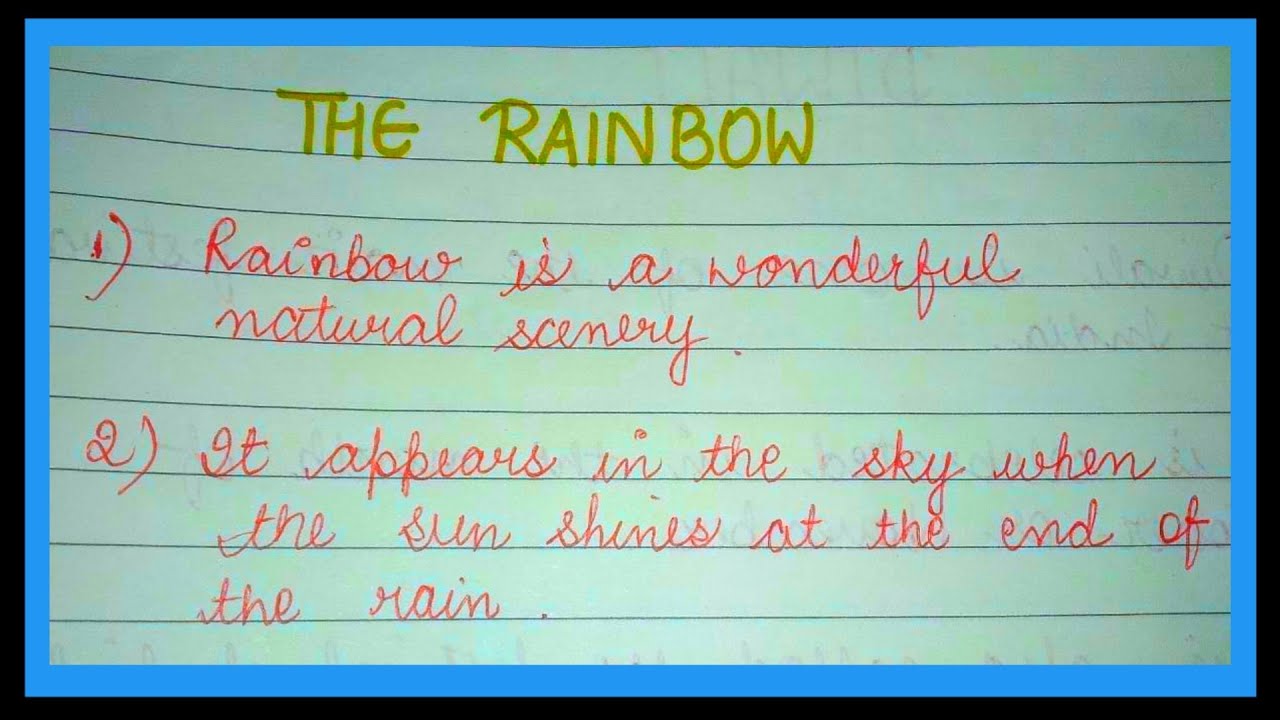 THE RAINBOW
1) Rainbow is a wonderful
natural scenery.
2) It appears in the sky when
the sun shines at the end of
the rain.